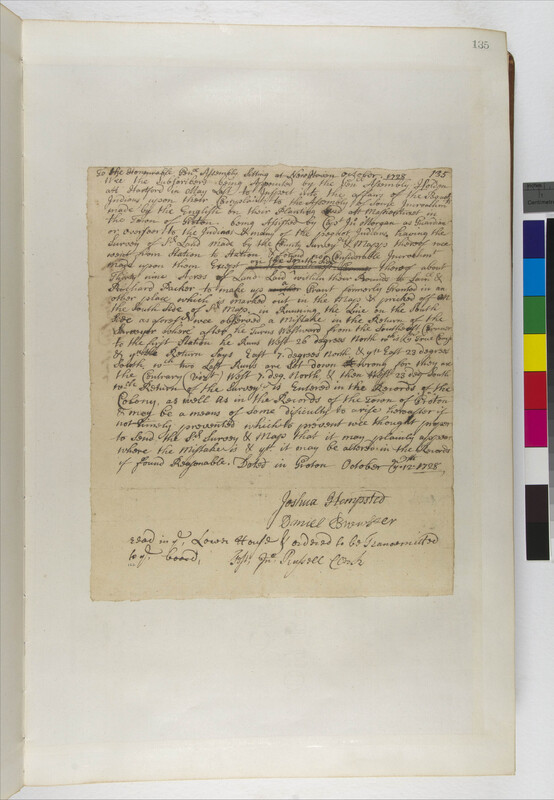 135
135
To the Honourable Gen.ll Assembly Sitting at New Haven October. 1728
Wee the Subscribers being Appointed by the Gen Assembly Holden
att Hartford in May Last to Inspect into the affairs of the Pequot
Indians upon their Complaint to the Assembly of Some Incroachmt
made by the English on their Planting Land att Mashantuxet in
the Town of Groton. being Assisted by Capt Morgan as Guardian
or overseer to the Indians & many of the Indians, haveing the
Survey of sd Land made by the County Survey.r & Mapps thereof wee
went from Station to Station & found no Considerable Incroachmt
made upon them Except thereof about
Thirty nine Acres of Land within their Bounds to Saml &
Prichard Parker to make up Grant formerly Granted in an
other place which is marked out in the Mapp & pricked off on
the South Side of sd Mapp. in Running the Line on the South
Side as aforesd wee observed a Mistake in the Return of the
Surveyor where after he turns Westward from the Southeast Corner
to the first Station he Runs West 26 degrees North
& yn the Return Says East 7 degrees North & yn East 23 degrees
South wch two Last Runs are Set down Wrong for they are
the Contrary (viz) West 7 deg North, & then West 23 deg South
wch Return of the Survey is Entered in the Records of the
Colony, as well as in the Records of the Town of Groton
& may be a means of Some dificulty to arise hereafter if
not timely prevented which to prevent wee thought proper
to Send the sd Survey & Mapp that it may plainly appear
where the Mistake is & yt it may be altered in the Records
if found Reasonable. Dated in Groton October ye 12th 1728
Joshua Hempsted
Daniel Brewster
read in ye Lower House & ordered to be Transmitted
to ye board,
Test Jno Russell Clerk